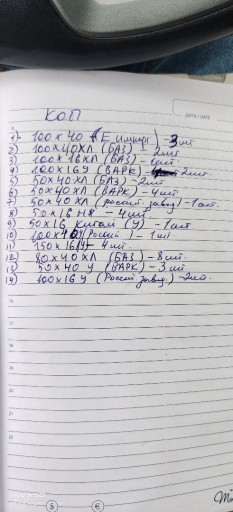 КОП
DATA / DATE
1) 100 х 40 (Е импорт) - 3 шт
2) 100х40ХЛ (БАЗ) - 2шт
3) 100х16ХЛ (БАЗ) - 1шт
4) 100х16У (ВАРК) - 2шт
5) 50х40 ХЛ (БАЗ) - 2шт
6) 50х40ХЛ (ВАРК) - 4шт
7) 50х40 ХЛ (россит. завод) - 1шт.
8) 50х16 НЖ - 4шт.
9) 50х16 Китай (У) - 1шт
10) 100х40У(Россий) - 1шт
11) 150х16У - 4шт.
12) 80х40ХЛ (БАЗ) - 8шт.
13) 50х40 У (ВАРК) - 3шт
14) 100х16У (Россит. завод.) - 2шт.